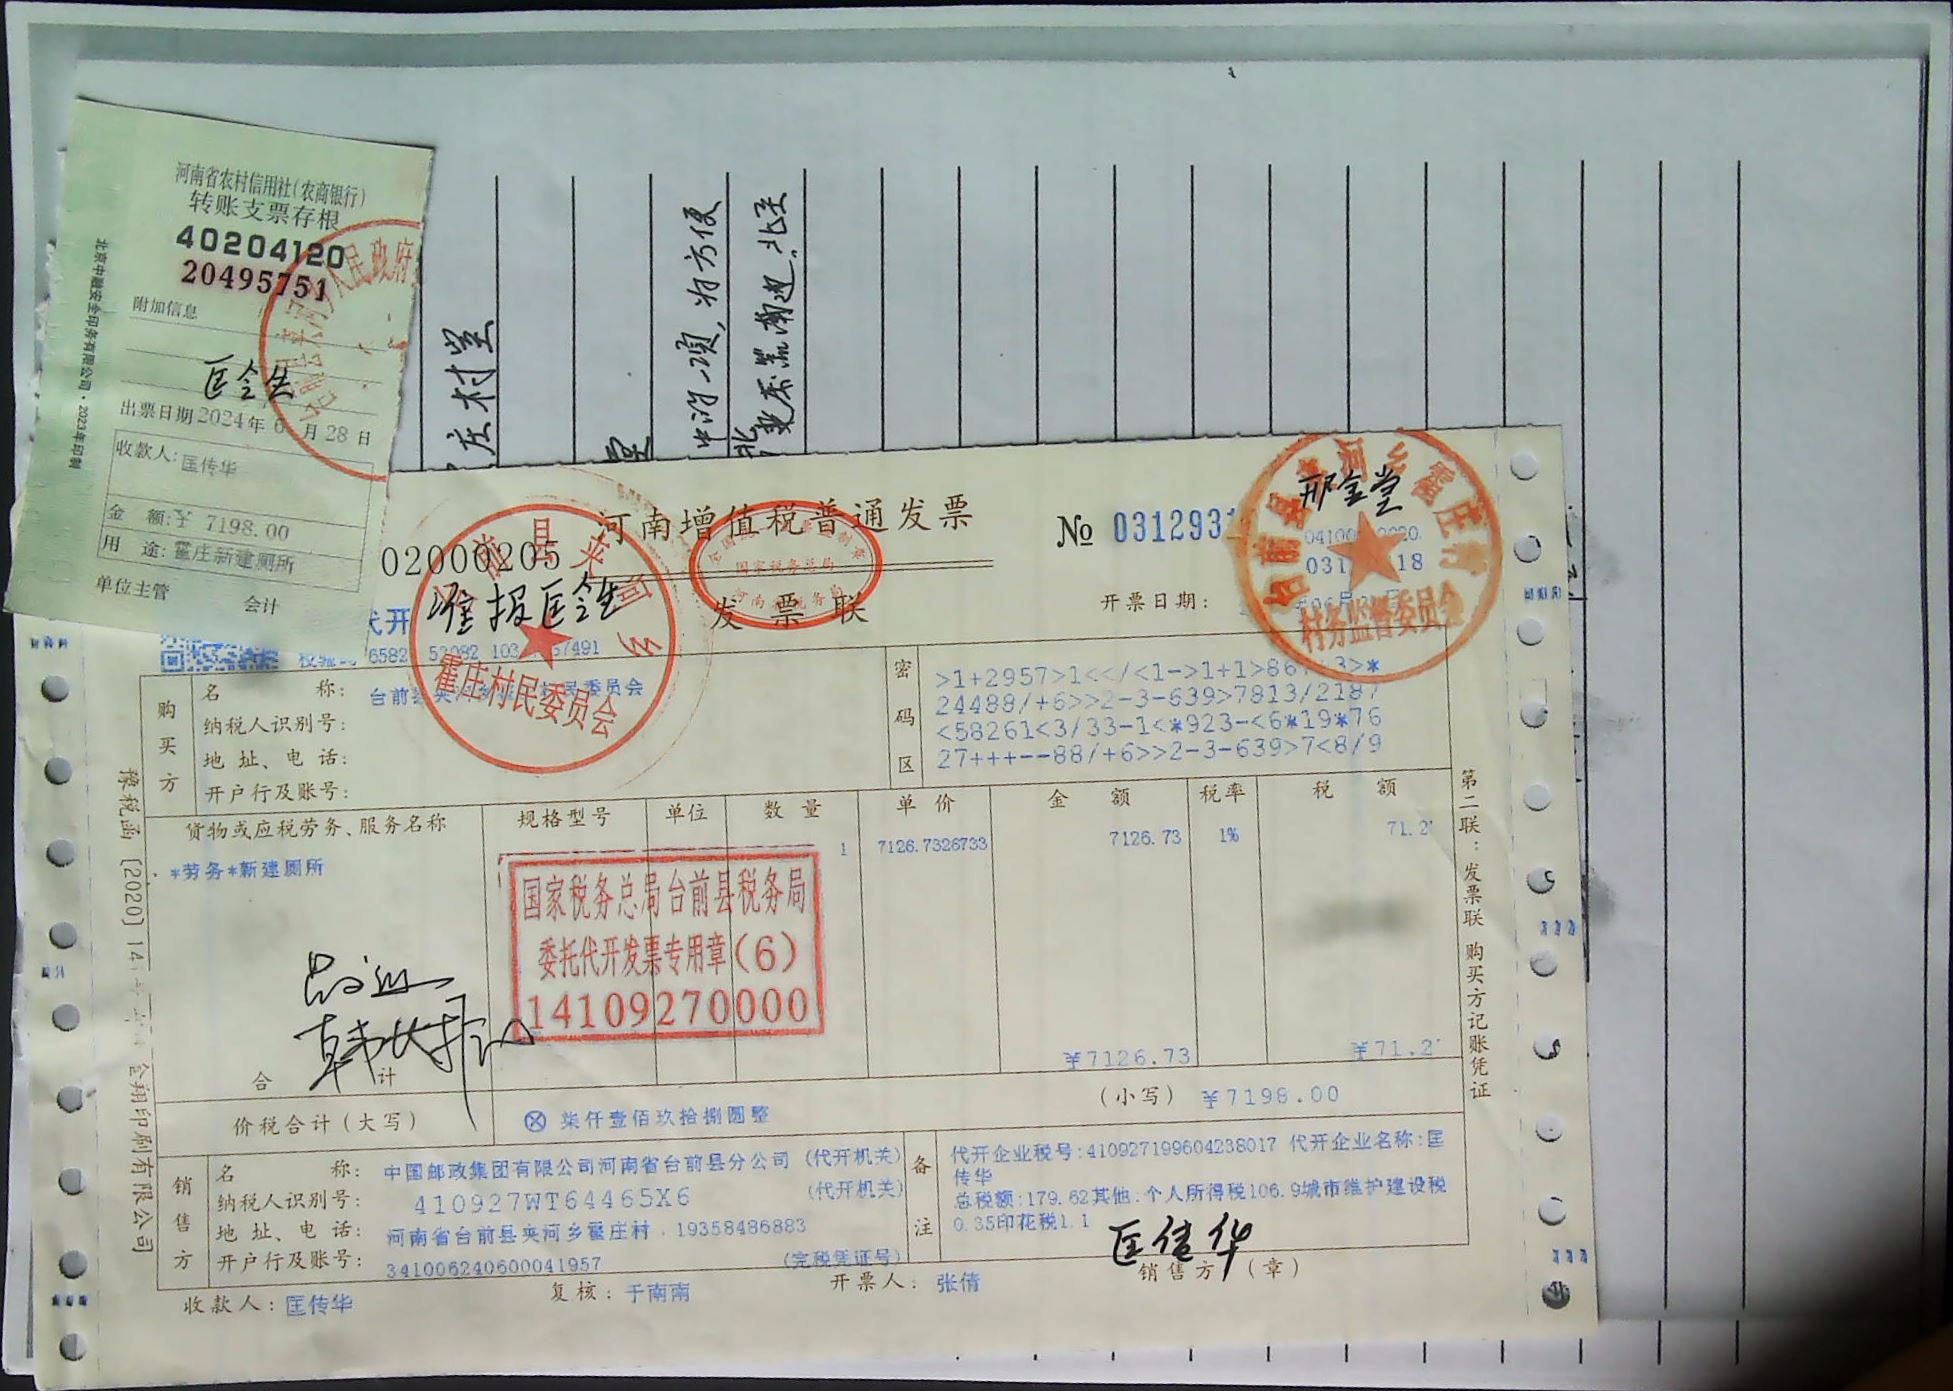 河南省农村信用社(农商银行)
转账支票存根
40204120
20495751
附加信息
匡会生
出票日期2024年6月28日
收款人:匡传华
金 额:¥ 7198.00
用 途:霍庄新建厕所
单位主管 会计
北京中融安全印务有限公司·2023年印制
人民政府
庄村堂
中的一项,为方便
02000205
河南增值税普通发票
发票联
国家税务总局
№ 0312931
开票日期:
代开
准报匡会生
霍庄村民委员会
邢金堂
村务监督委员会
购买方
名 称:
纳税人识别号:
地址、电话:
开户行及账号:
密码区
>1+2957>1<</<1->1+1>86
24488/+6>>2-3-639>7813/2187
<58261<3/33-1<*923-<6*19*76
27+++--88/+6>>2-3-639>7<8/9
货物或应税劳务、服务名称 规格型号 单位 数量 单价 金额 税率 税额
*劳务*新建厕所 1 7126.7326733 7126.73 1% 71.2
国家税务总局台前县税务局
委托代开发票专用章(6)
14109270000
合 计 ¥7126.73 ¥71.2
价税合计(大写) ⊗ 柒仟壹佰玖拾捌圆整 (小写) ¥7198.00
销售方
名 称: 中国邮政集团有限公司河南省台前县分公司 (代开机关)
纳税人识别号: 410927WT64465X6 (代开机关)
地址、电话: 河南省台前县夹河乡霍庄村 19358486883
开户行及账号: 341006240600041957 (完税凭证号)
备注
代开企业税号:410927199604238017 代开企业名称:匡
传华
总税额:179.62其他:个人所得税106.9城市维护建设税
0.35印花税1.1
匡传华
收款人: 匡传华 复核: 于南南 开票人: 张倩 销售方(章)
第二联:发票联 购买方记账凭证
豫税函〔2020〕14
金翔印刷有限公司